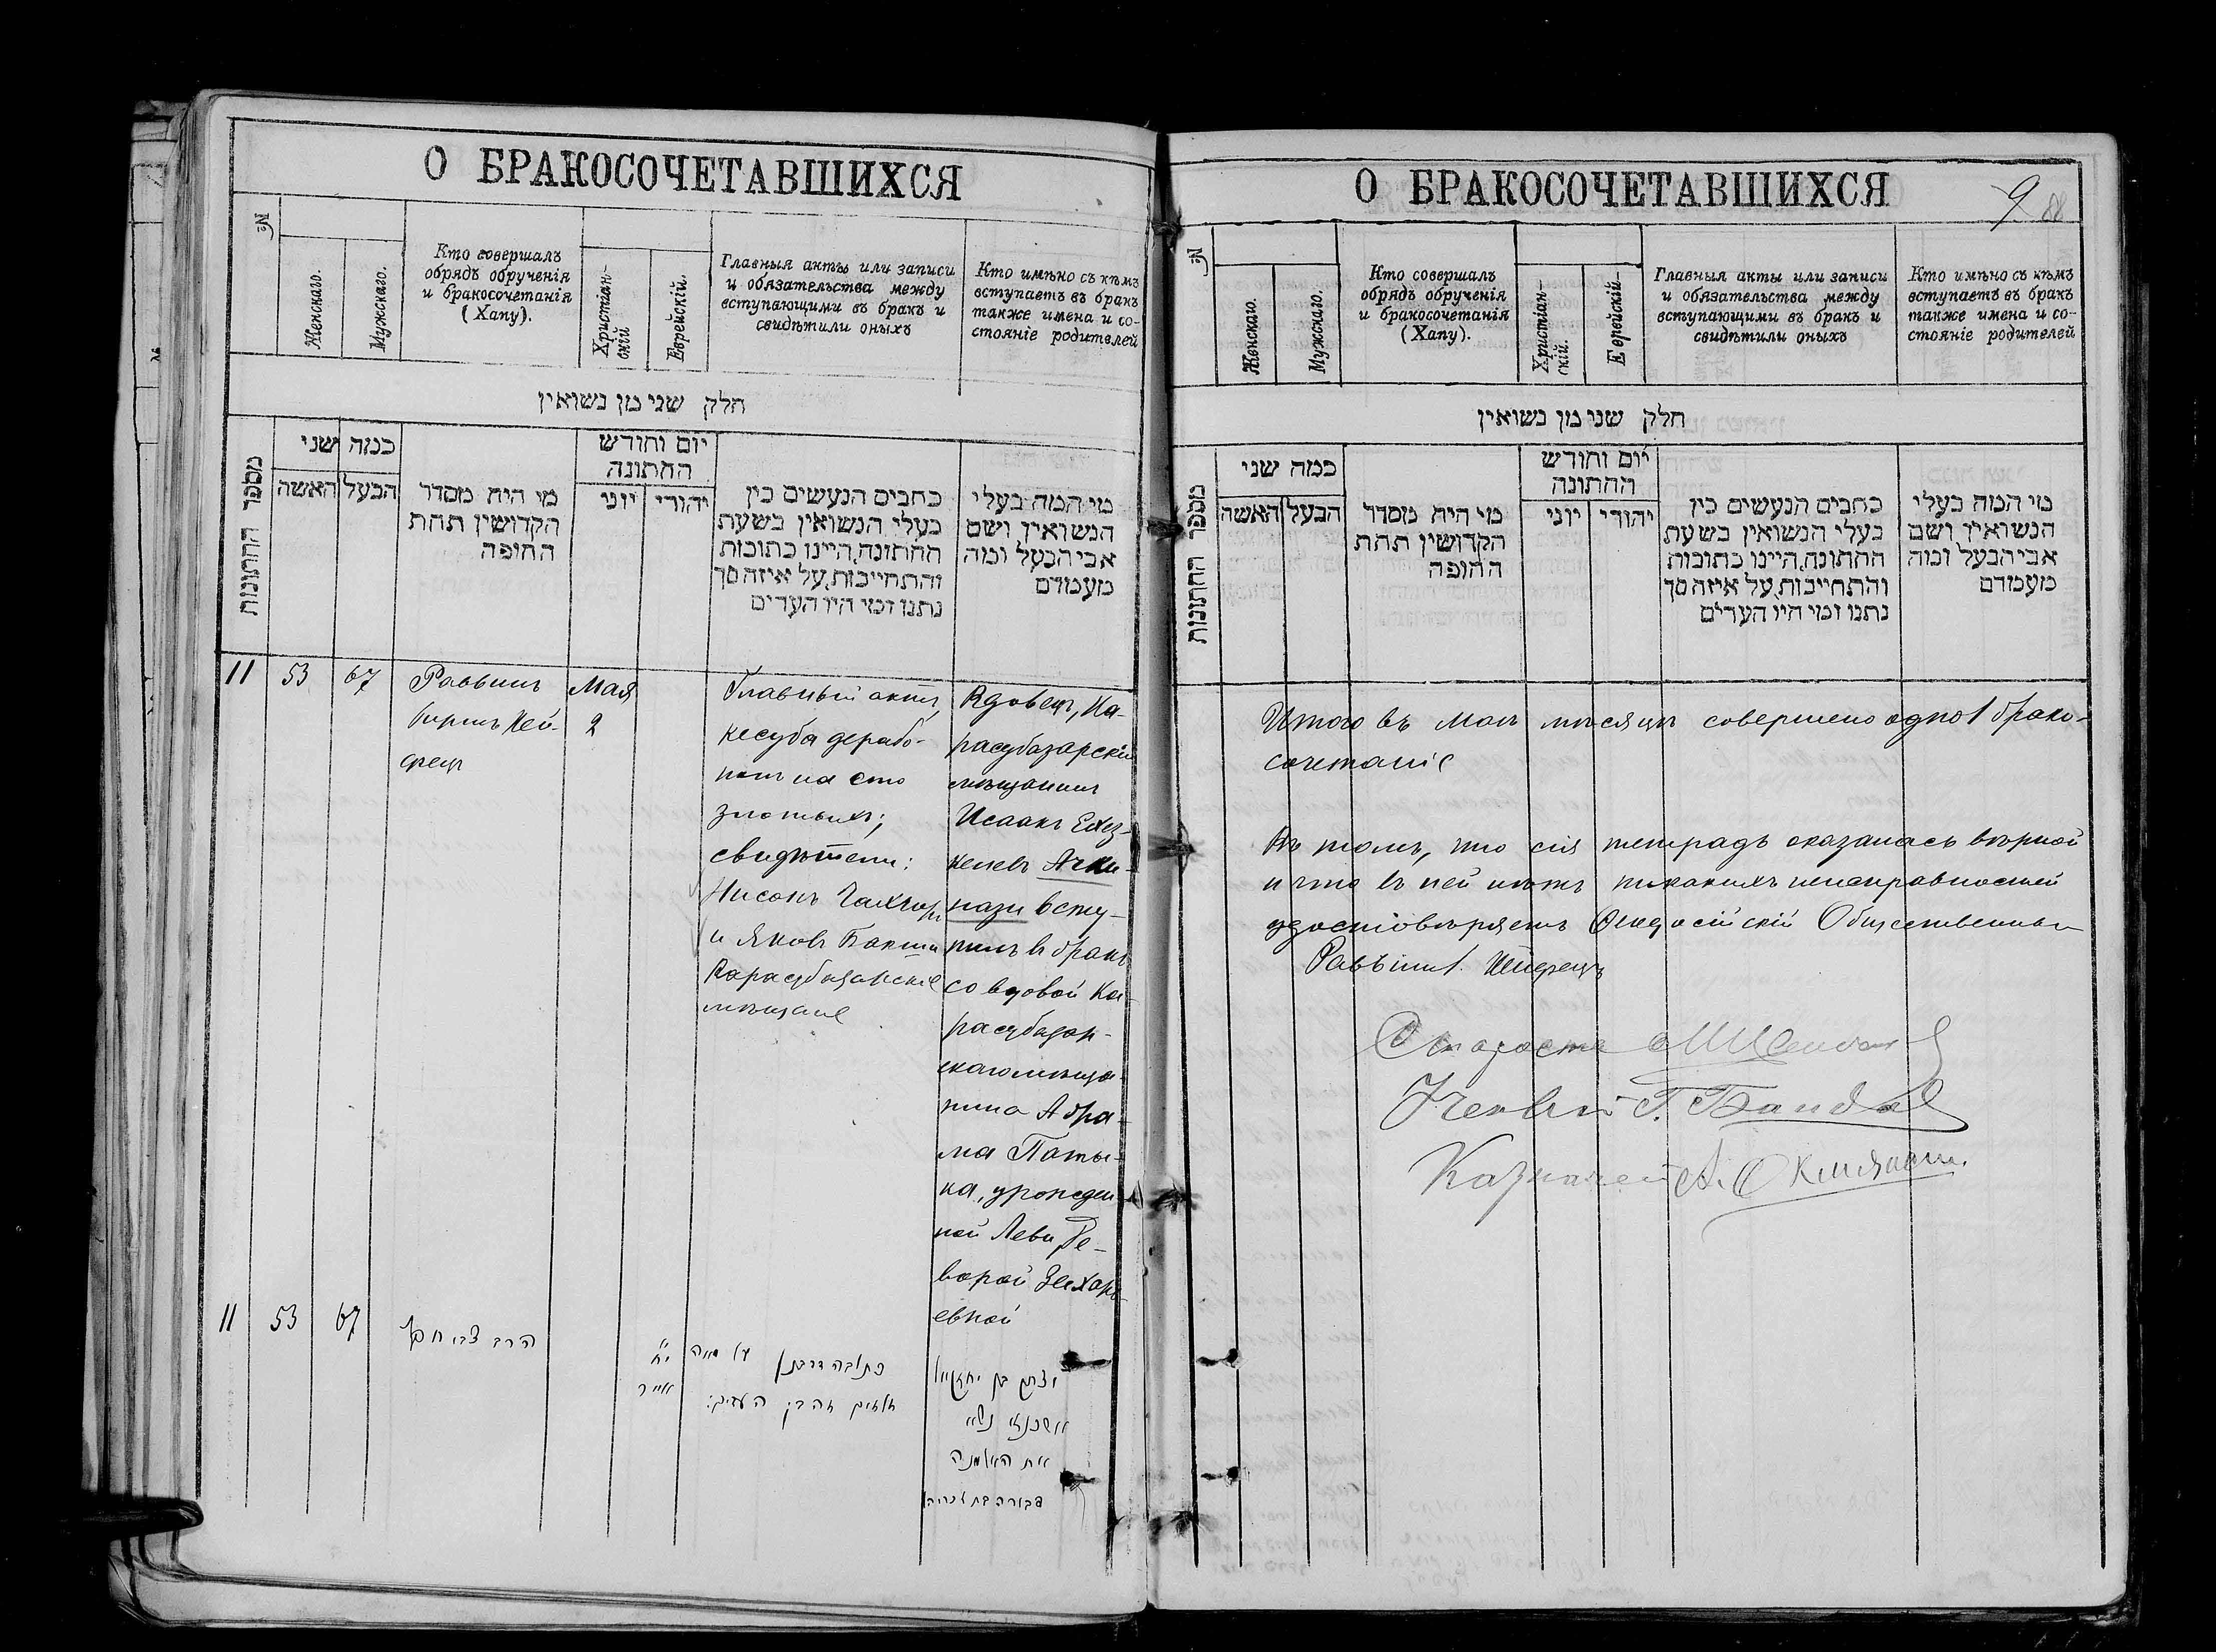 О БРАКОСОЧЕТАВШИХСЯ
№
Женскаго.
Мужскаго.
Кто совершалъ
обрядъ обрученія
и бракосочетанія
(Хапу).
Христіан-
скій
Еврейскій.
Главныя акты или записи
и обязательства между
вступающими въ бракъ и
свидѣтили оныхъ
Кто имѣно съ кѣмъ
вступаетъ въ бракъ
также имена и со-
стояніе родителей
חלק שני מן נשואין
מספר החתונות
כמה שני
הבעל האשה
מי היה מסדר
הקדושין תחת
החופה
יום וחודש
החתונה
יהודי יוני
כתבים הנעשים בין
בעלי הנשואין בשעת
החתונה, היינו כתובות
והתחייבות, על איזה סך
נתנו ומי היו העדים
מי המה בעלי
הנשואין ושם
אבי הבעל ומה
מעמדם
11 53 67
Раввинъ
Гиршъ Кей-
фецъ
Мая
2
Главный актъ,
кесуба дерабо-
нонъ на сто
злотыхъ;
свидѣтели:
Нисонъ
и Яковъ Бакши
Карасубазарскіе
мѣщане
Вдовецъ, Ка-
расубазарскій
мѣщанинъ
Исаакъ Езез-
келевъ Ачки-
нази всту-
пилъ въ бракъ
со вдовой Ка-
расубазар-
скаго мѣща-
нина Абра-
ма Паты-
ка, урожден-
ной Леви Де-
ворой Захарь-
евной
11 53 67
הרב צבי חפץ
י״ח
אייר
כתובה דרבנן על מאה
זהובים העדים:
יצחק בן יחזקאל
אשכנזי נשא
את האלמנה
דבורה בת זכריה
О БРАКОСОЧЕТАВШИХСЯ
9
88
№
Женскаго.
Мужскаго.
Кто совершалъ
обрядъ обрученія
и бракосочетанія
(Хапу).
Христіан-
скій.
Еврейскій-
Главныя акты или записи
и обязательства между
вступающими въ бракъ и
свидѣтили оныхъ
Кто имѣно съ кѣмъ
вступаетъ въ бракъ
также имена и со-
стояніе родителей
חלק שני מן נשואין
מספר החתונות
כמה שני
הבעל האשה
מי היה מסדר
הקדושין תחת
החופה
יום וחודש
החתונה
יהודי יוני
כתבים הנעשים בין
בעלי הנשואין בשעת
החתונה, היינו כתובות
והתחייבות, על איזה סך
נתנו ומי היו העדים
מי המה בעלי
הנשואין ושם
אבי הבעל ומה
מעמדם
Итого въ маѣ мѣсяцѣ совершено одно 1 брако-
сочетаніе
Въ томъ, что сія тетрадь оказалась вѣрной
и что въ ней нѣтъ никакихъ неисправностей
удостовѣряетъ Ѳеодосійскій Общественный
Раввинъ.
Староста
Ученый Г.
Казначей А.